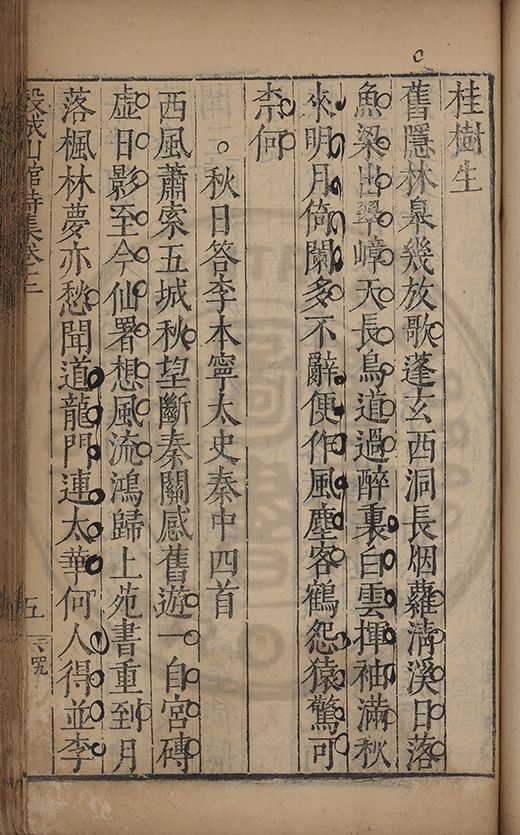 桂樹生
舊隱林皐幾放歌蓬玄西洞長烟蘿清溪日落
魚梁出翠嶂天長鳥道過醉裏白雲揮袖滿秋
來明月倚闌多不辭便作風塵客鶴怨猿驚可
柰何
秋日答李本寧太史秦中四首
西風蕭索五城秋望斷秦關感舊遊一自宮磚
虛日影至今仙署想風流鴻歸上苑書重到月
落楓林夢亦愁聞道龍門連太華何人得並李
榖城山館詩集卷十二
五